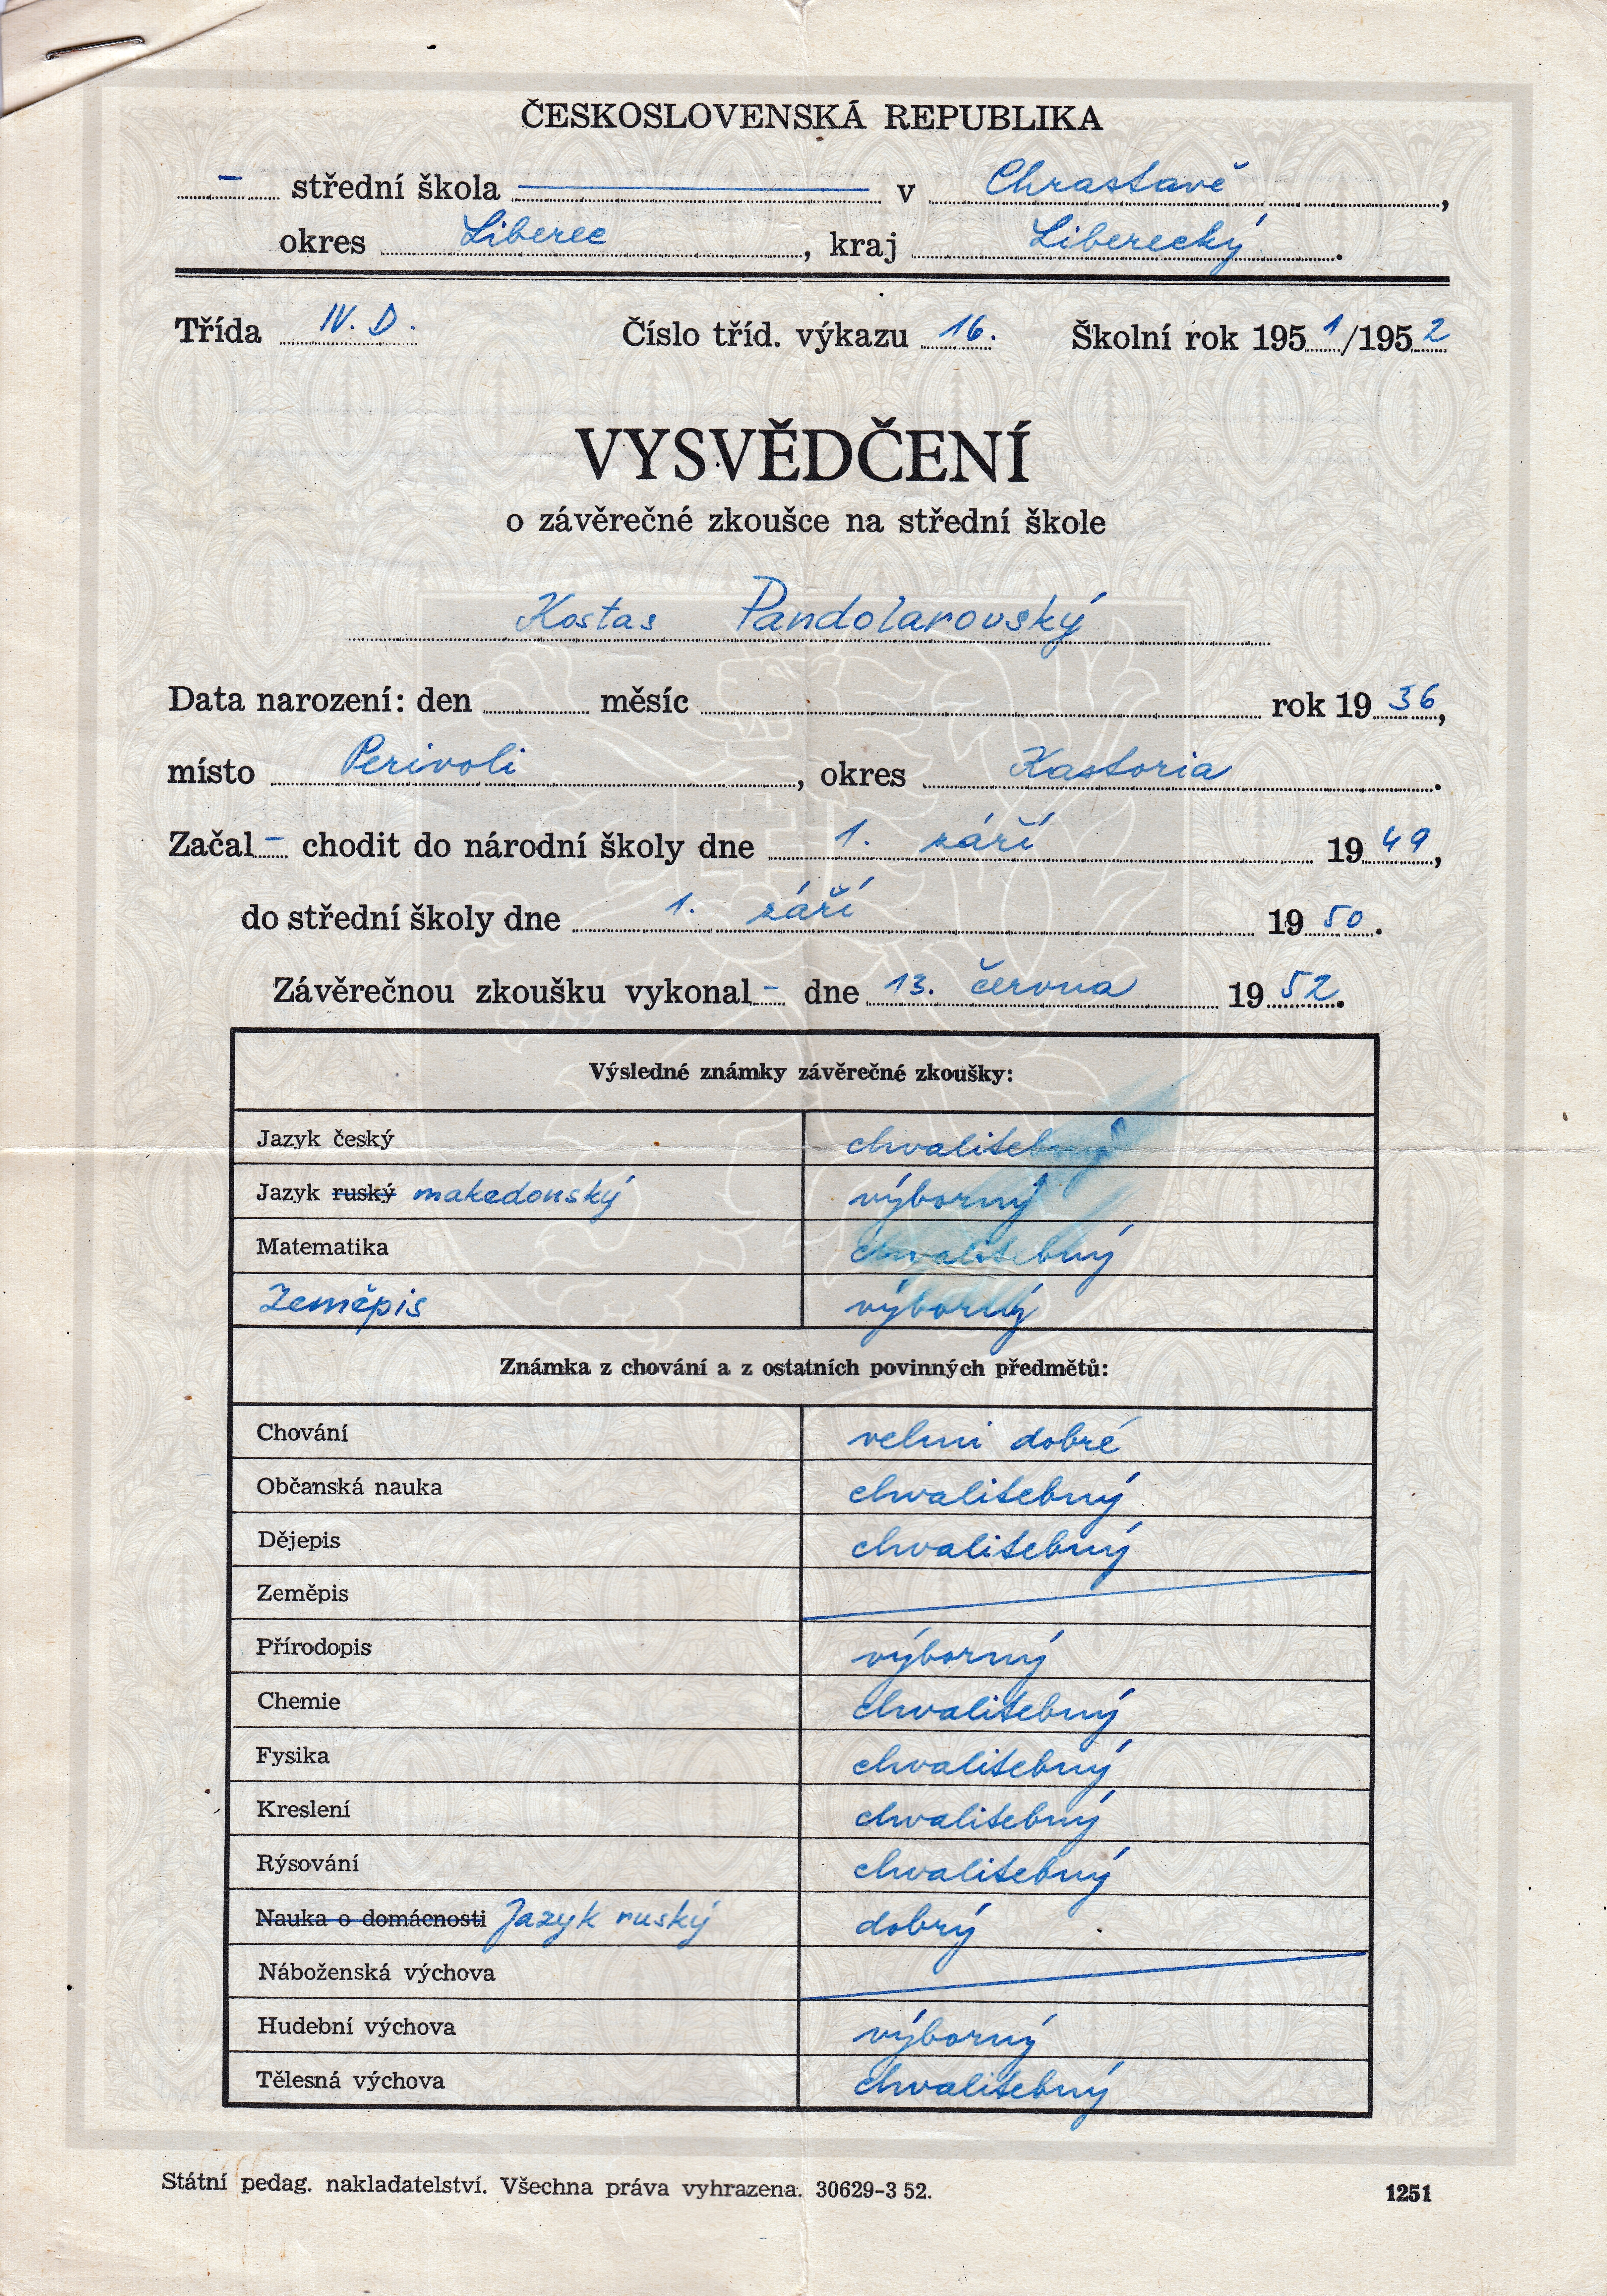 ČESKOSLOVENSKÁ REPUBLIKA
– střední škola v Chrastavě,
okres Liberec, kraj Liberecký.
Třída IV. D. Číslo tříd. výkazu 16. Školní rok 1951/1952
VYSVĚDČENÍ
o závěrečné zkoušce na střední škole
Kostas Pandolarovský
Data narození: den měsíc rok 1936,
místo Perivoli, okres Kastoria.
Začal – chodit do národní školy dne 1. září 1949,
do střední školy dne 1. září 1950.
Závěrečnou zkoušku vykonal – dne 13. června 1952.
Výsledné známky závěrečné zkoušky:
Jazyk český chvalitebný
Jazyk ruský makedonský výborný
Matematika chvalitebný
Zeměpis výborný
Známka z chování a z ostatních povinných předmětů:
Chování velmi dobré
Občanská nauka chvalitebný
Dějepis chvalitebný
Zeměpis
Přírodopis výborný
Chemie chvalitebný
Fysika chvalitebný
Kreslení chvalitebný
Rýsování chvalitebný
Nauka o domácnosti Jazyk ruský dobrý
Náboženská výchova
Hudební výchova výborný
Tělesná výchova chvalitebný
Státní pedag. nakladatelství. Všechna práva vyhrazena. 30629-3 52. 1251